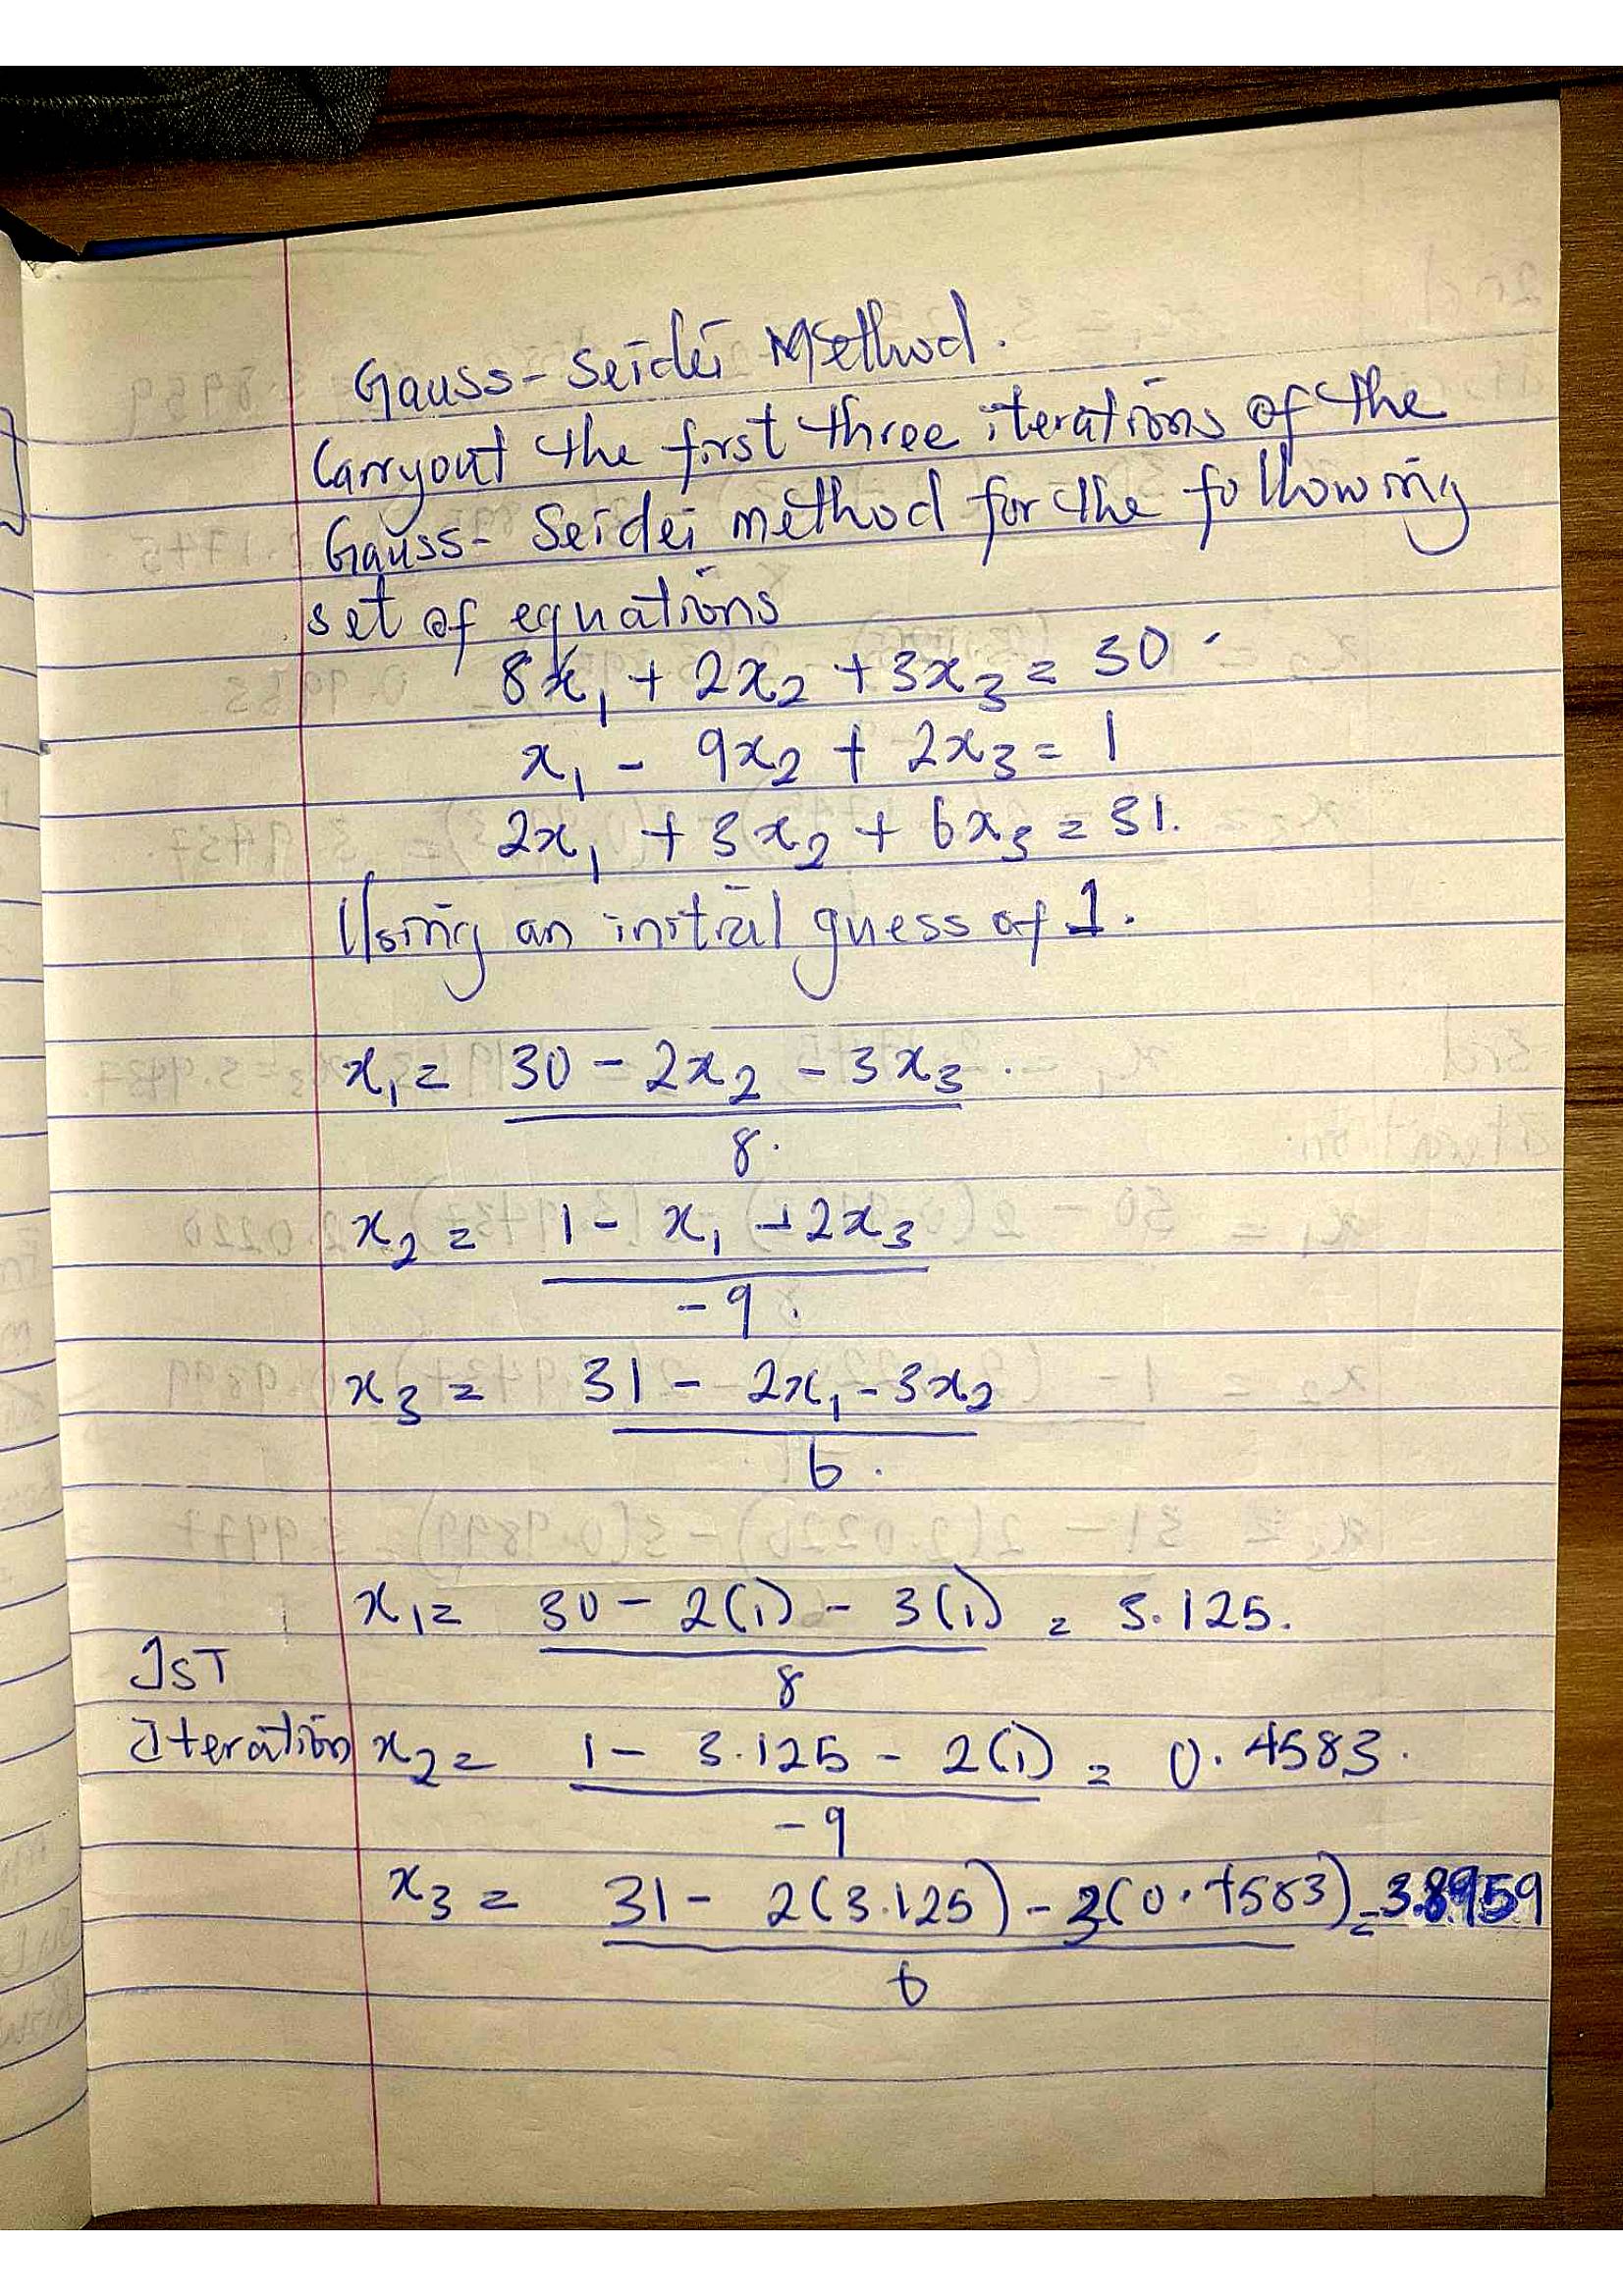 Gauss-Seidei Method.
Carryout the first three iterations of the
Gauss- Seidei method for the following
set of equations
8x₁ + 2x₂ + 3x₃ = 30
x₁ - 9x₂ + 2x₃ = 1
2x₁ + 3x₂ + 6x₃ = 31.
Using an initial guess of 1.
x₁ = 30 - 2x₂ - 3x₃
8.
x₂ = 1 - x₁ - 2x₃
-9.
x₃ = 31 - 2x₁ - 3x₂
6.
x₁ = 30 - 2(1) - 3(1) = 3.125.
8
1ST
Iteration x₂ = 1 - 3.125 - 2(1) = 0.4583.
-9
x₃ = 31 - 2(3.125) - 3(0.4583) = 3.8959
6